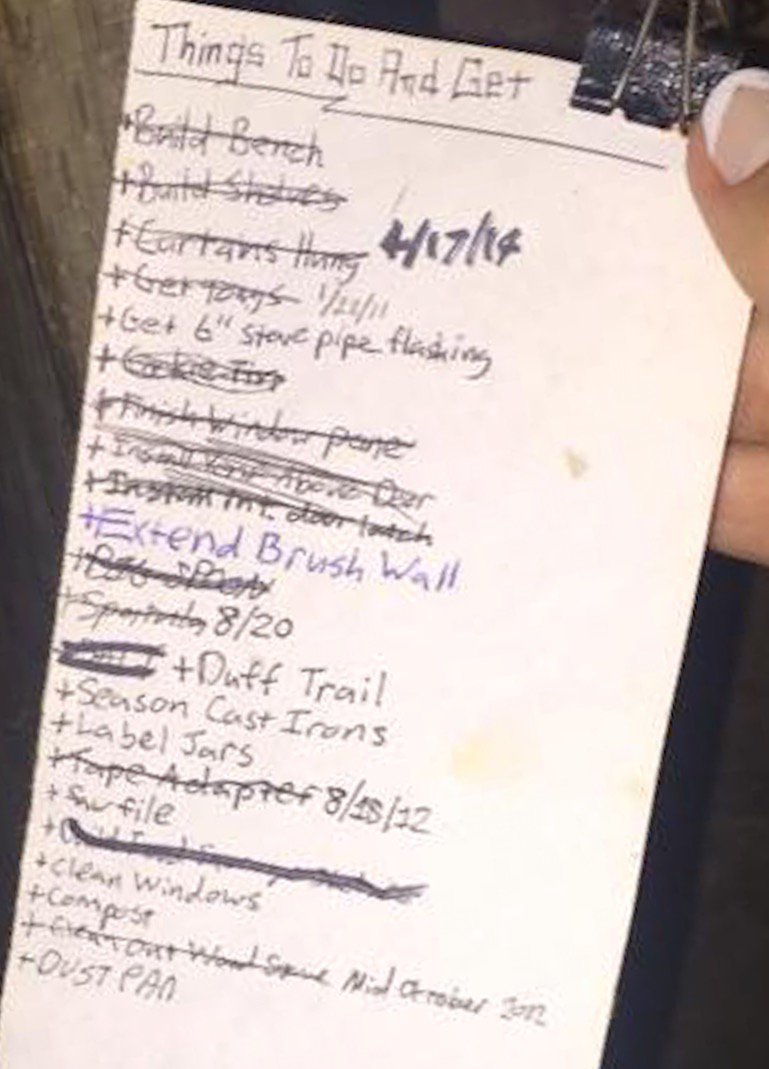 Things To Do And Get
+Build Bench
+Build Shelves
+Curtains Hung 4/17/14
+Get 1/21/11
+Get 6" stove pipe flashing
+Cookie Tins
+Finish Window pane
+Install Above Door
+Install int. door latch
+Extend Brush Wall
+
+ 8/20
+Duff Trail
+Season Cast Irons
+Label Jars
+Tape Adapter 8/18/12
+Saw file
+
+Clean Windows
+Compost
+Clean Out Wood Stove Mid October 2012
+DUST PAn